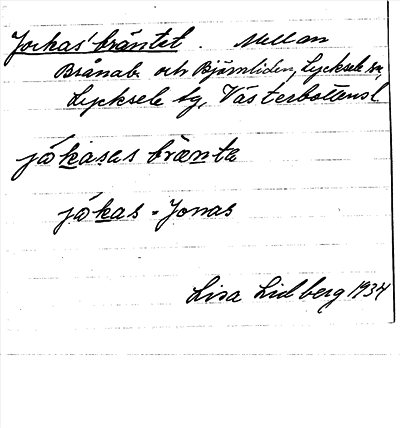 Jockas'bräntet. Mellan
Brånab. och Björnliden, Lycksele sn,
Lycksele tg, Västerbottens l
jåkasas brænta
jåkas = Jonas
Lisa Lidberg 1934